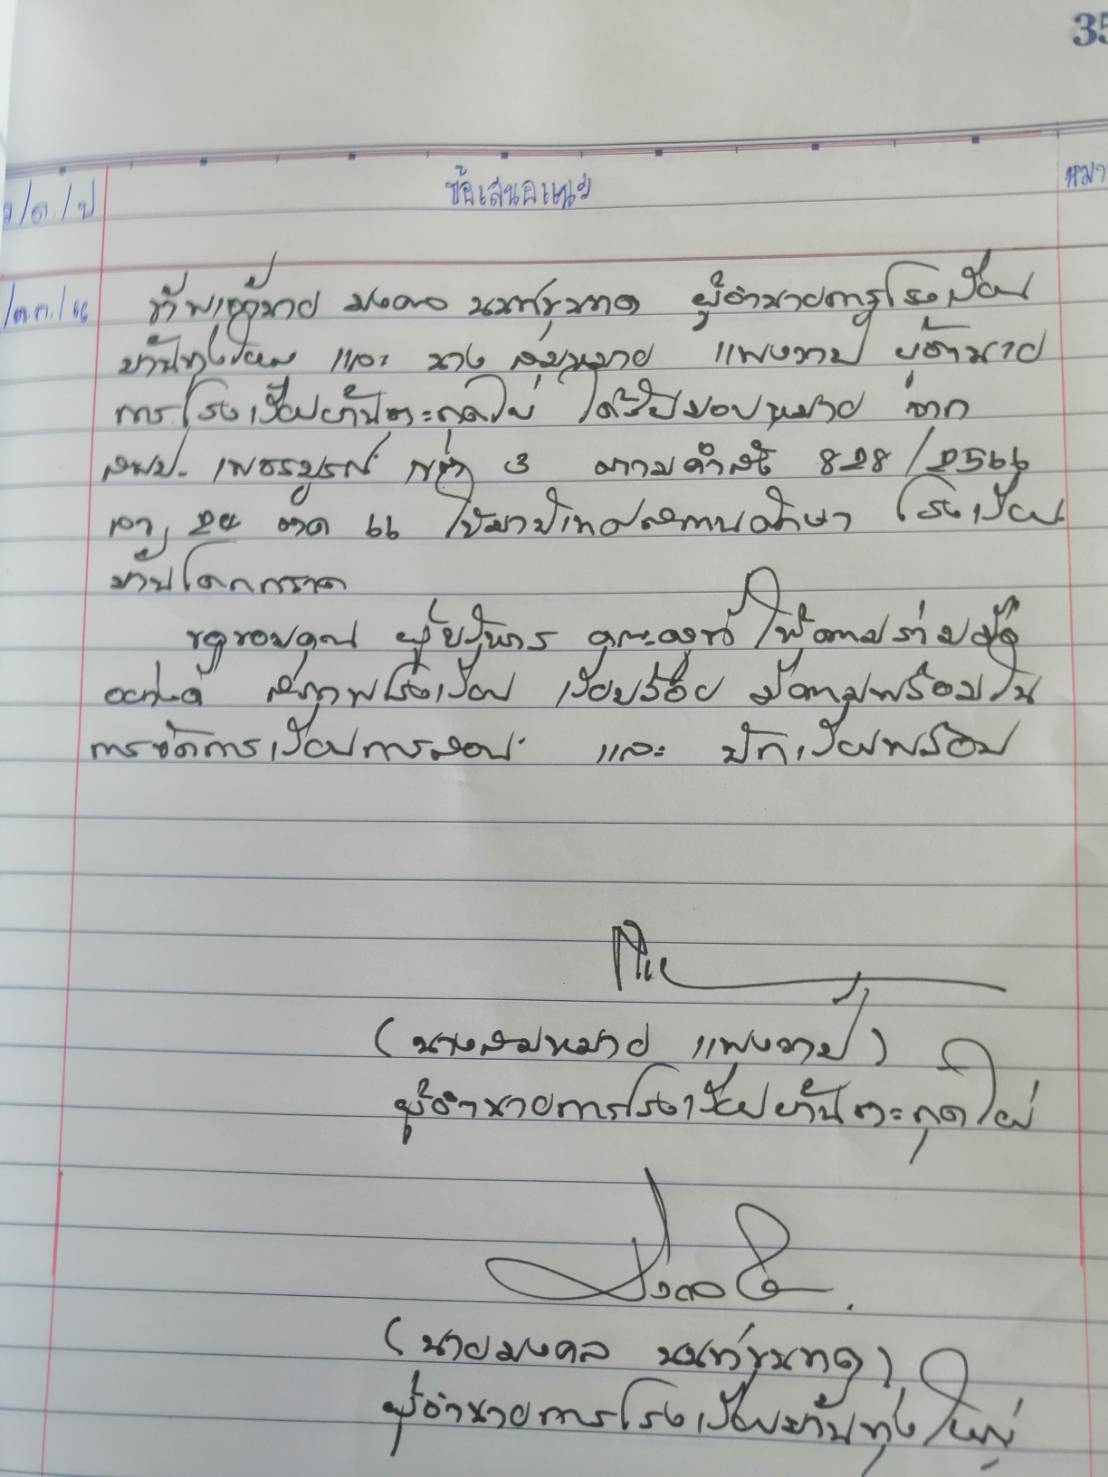 35
ว/ด/ป ข้อเสนอแนะ หมา
/ต.ค./66 ข้าพเจ้านาย มงคล นนท์ขุนทด ผู้อำนวยการโรงเรียน
บ้านทุ่งใหญ่ และ นาง สมหมาย แพงวาปี ผู้อำนวย
การโรงเรียนบ้านตะกุดไผ่ ได้รับมอบหมาย จาก
สพป. เพชรบูรณ์ เขต 3 ตามคำสั่ง 828/2566
ให้มานิเทศสถานศึกษา โรงเรียน
บ้านโคกกรวด
ขอขอบคุณ ผู้บริหาร คณะครู ให้ความร่วมมือ
สภาพโรงเรียน เรียบร้อย มีความพร้อมใน
การจัดการเรียนการสอน และ นักเรียนพร้อม
(นางสมหมาย แพงวาปี)
ผู้อำนวยการโรงเรียนบ้านตะกุดไผ่
(นายมงคล นนท์ขุนทด)
ผู้อำนวยการโรงเรียนบ้านทุ่งใหญ่